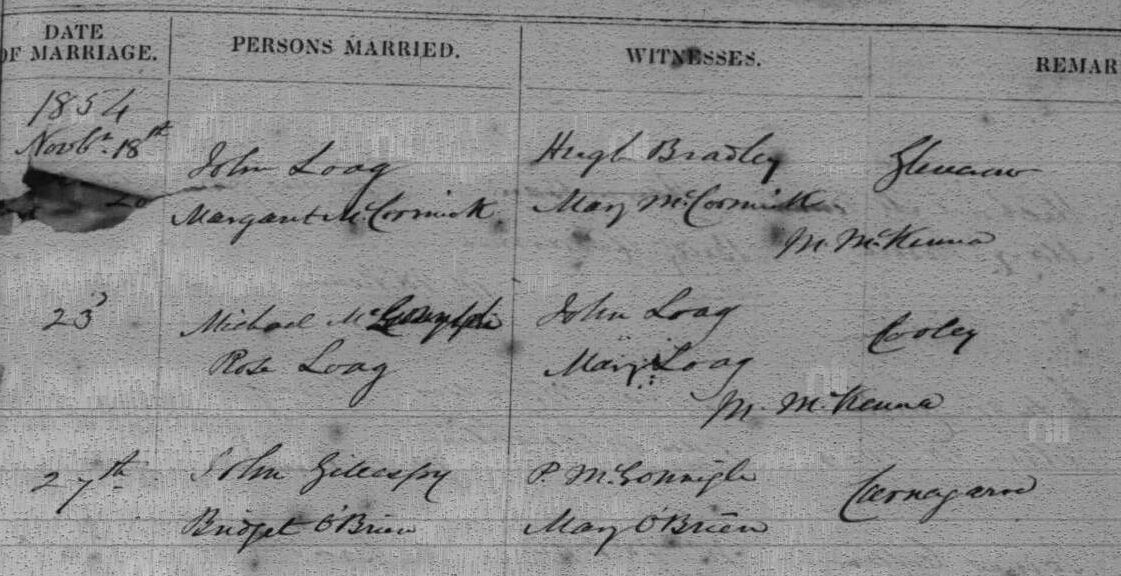 DATE
OF MARRIAGE.
PERSONS MARRIED.
WITNESSES.
REMAR
1854
Novbr. 18th
John Loag
Hugh Bradley
Margaret McCormick
Mary McCormick
20
M. McKenna
23
Michael
John Loag
Cooley
Rose Loag
Mary Loag
M. McKenna
27th
John Gillespy
P. McGonnigle
Carnagarve
Bridget O'Brien
Mary O'Brien